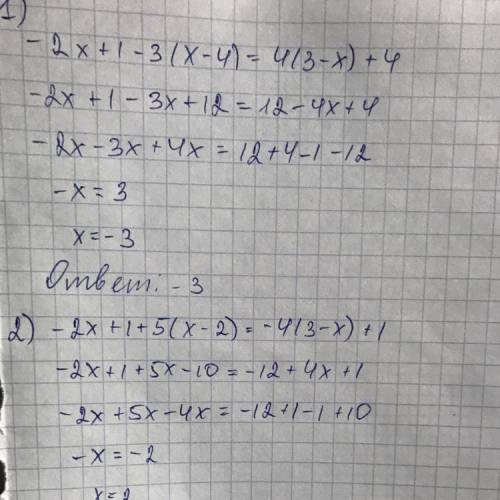 1)
-2x+1-3(x-4)=4(3-x)+4
-2x+1-3x+12=12-4x+4
-2x-3x+4x=12+4-1-12
-x=3
x=-3
Ответ: -3
2) -2x+1+5(x-2)=-4(3-x)+1
-2x+1+5x-10=-12+4x+1
-2x+5x-4x=-12+1-1+10
-x=-2
x=2